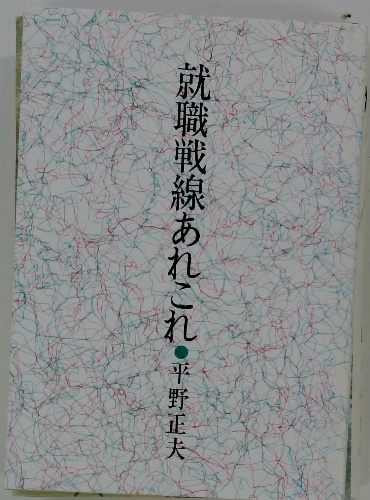 就職戦線あれこれ●平野正夫